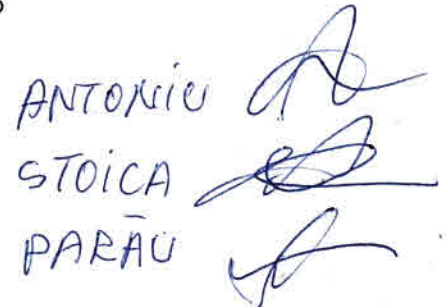 ANTONIU
STOICA
PARĀU